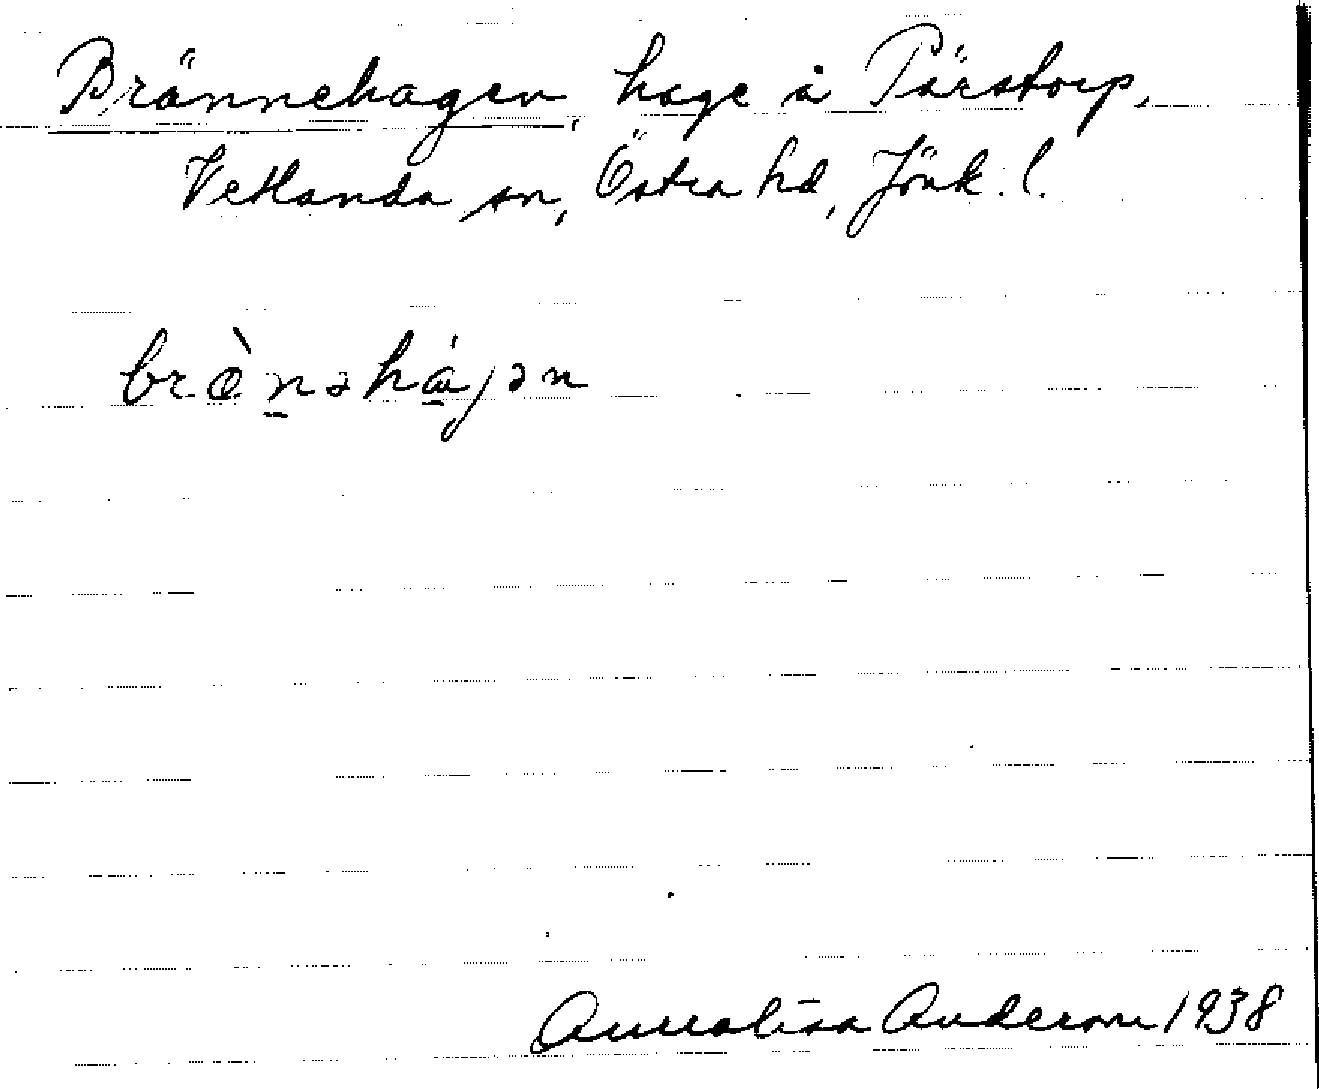 Brännehagen, hage å Pärstorp,
Vetlanda sn, Östra hd, Jönk. l.
bræ̀nəhájən
Annalisa Anderson 1938